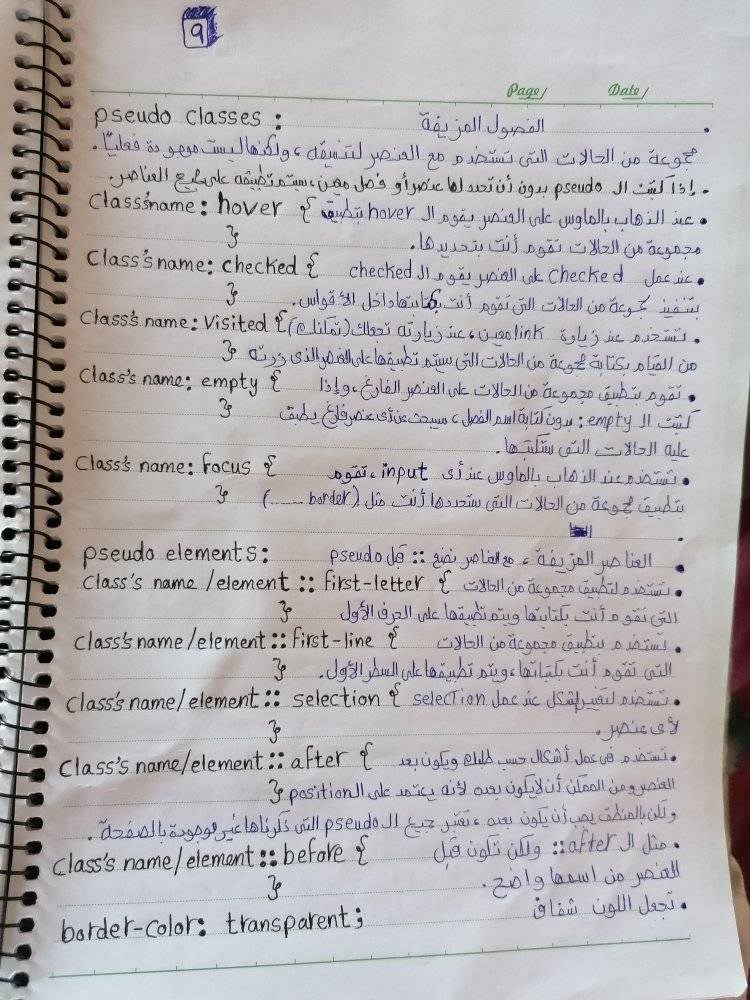 9
Page/ Date/
pseudo classes : الفصول المزيفة .
مجموعة من الحالات التى تستخدم مع العنصر لتنسيقه ، ولكنها ليست موجودة فعليًا .
. إذا كتبت الـ pseudo بدون أن تحدد لها عنصر أو فصل معين ، سيتم تطبيقه على جميع العناصر .
Class's name : hover { • عند الذهاب بالماوس على العنصر يقوم الـ hover بتطبيق
} مجموعة من الحالات تقوم أنت بتحديدها .
Class's name : checked { • عند عمل checked على العنصر يقوم الـ checked
} بتنفيذ مجموعة من الحالات التى تقوم أنت بكتابتها داخل الأقواس .
Class's name : Visited { • تستخدم عند زيارة link معين ، عند زيارته
} من القيام بكتابة مجموعة من الحالات التى سيتم تطبيقها على العنصر الذى زرته
Class's name : empty { • تقوم بتطبيق مجموعة من الحالات على العنصر الفارغ ، وإذا
} كتبت الـ empty : بدون كتابة اسم الفصل ، سيبحث عن أى عنصر فارغ يطبق
عليه الحالات التى ستكتبها .
Class's name : focus { • تستخدم عند الذهاب بالماوس عند أى input ، تقوم
} بتطبيق مجموعة من الحالات التى ستحددها أنت مثل ( border ...... )
pseudo elements : • العناصر المزيفة ، مع العناصر نضع :: قبل pseudo
Class's name /element :: first-letter { • تستخدم لتطبيق مجموعة من الحالات
} التى تقوم أنت بكتابتها ويتم تطبيقها على الحرف الأول
Class's name/element :: first-line { • تستخدم بتطبيق مجموعة من الحالات
} التى تقوم أنت بكتابتها ، ويتم تطبيقها على السطر الأول .
Class's name/element :: selection { • تستخدم لتغيير الشكل عند عمل selection
} لأى عنصر .
Class's name/element :: after { • تستخدم فى عمل أشكال حسب طلبك ويكون بعد
} العنصر ومن الممكن أن لا يكون بعده لأنه يعتمد على الـ position
ولكن بالمنطق يجب أن يكون بعده ، تعتبر جميع الـ pseudo التى ذكرناها غير موجودة بالصفحة .
Class's name/element :: before { • مثل الـ after :: ولكن تكون قبل
} العنصر من اسمها واضح .
border-color : transparent ; • تجعل اللون شفاف